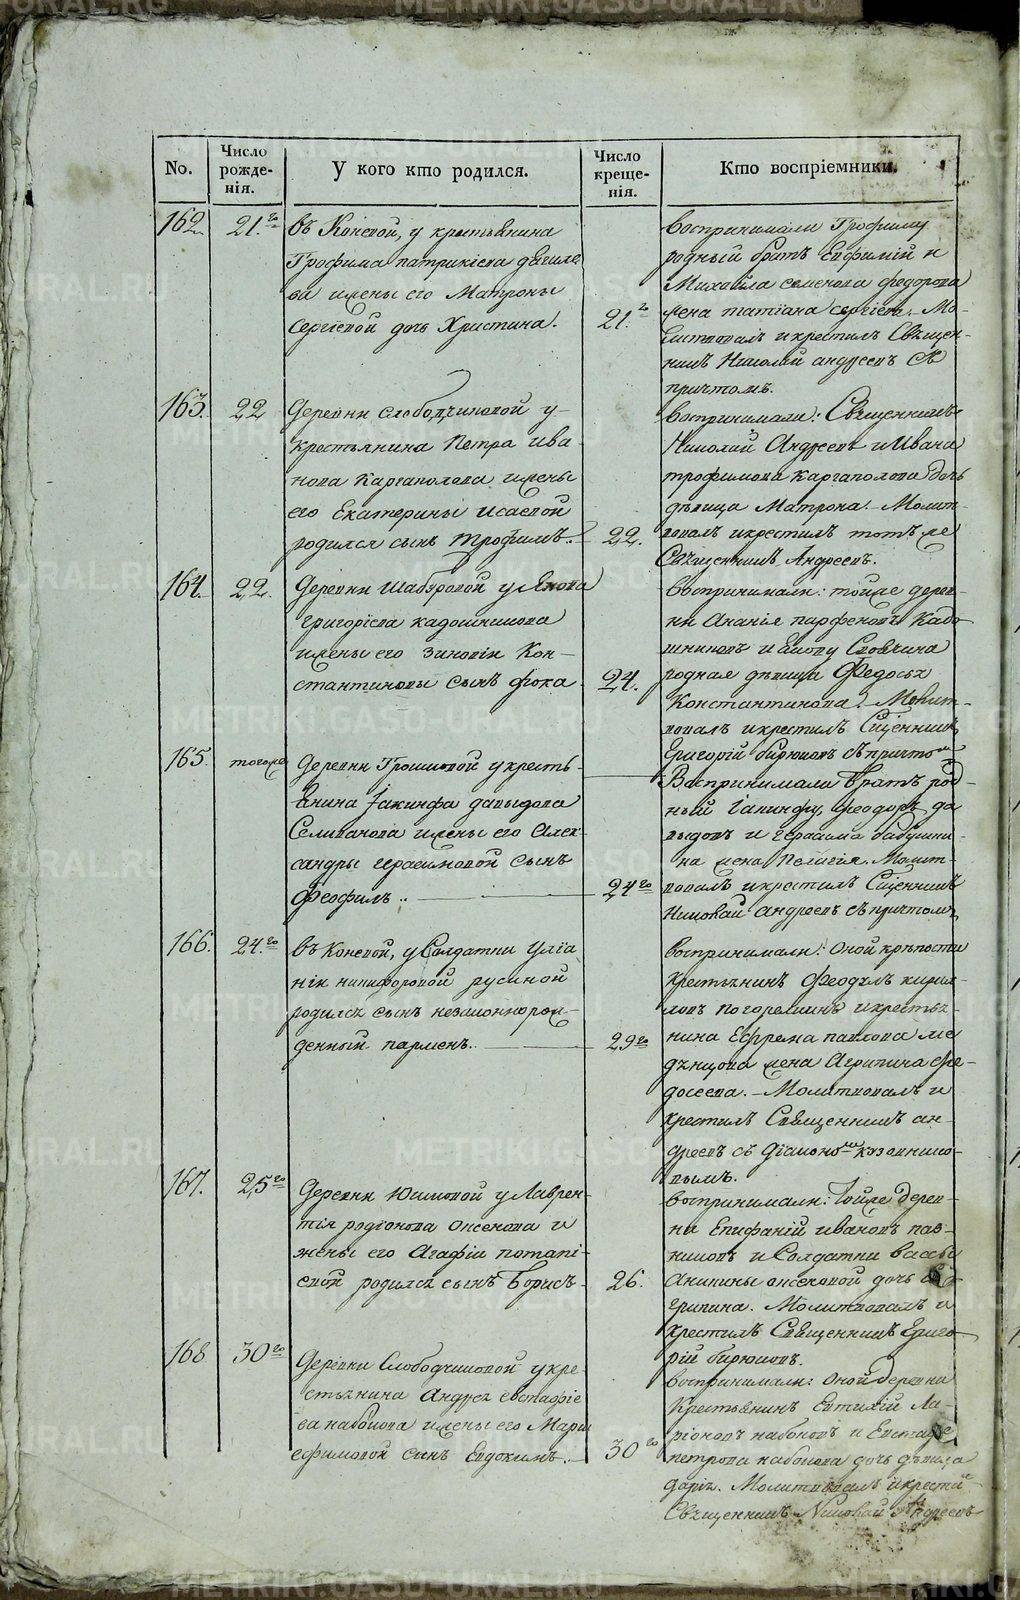 No.
Число рожде- нія.
У кого кто родился.
Число креще- нія.
Кто воспріемники.
162.
21.го
въ Коневой, у крестьянина
Трофима патрикіева
ва жены его Матроны
Сергіевой дочь Христина.
21.го
воспринимали Трофиму
родный братъ Евфимій и
Михайла семенова федорова
жена татіана сергіева. Мо-
литвовалъ и крестилъ Священ-
никъ Николай андреевъ съ
причтомъ.
163.
22
Деревни слободчиковой у
крестьянина Петра ива
нова Каргаполова жены
его Екатерины исаевой
родился сынъ трофимъ.
22.
воспринимали: Священникъ
Николай Андреевъ и Ивана
трофимова каргаполова дочь
дѣвица Матрона. Молит-
вовалъ и крестилъ тотъ же
Священникъ Андреевъ.
164.
22.
Деревни шабуровой у
григорієва кадошникова
жены его зиновіи Кон-
стантиновы сынъ фока
24.
воспринимали: тойже дерев-
ни Ананія парфеновъ Кадо
шниковъ и
родная дѣвица Федосья
Константинова. Молит-
вовалъ и крестилъ Сщенникъ
Григорій бирюковъ съ причтомъ
165.
тогоже
Деревни Грошковой у кресть-
янина Іакинфа давыдова
Селиванова жены его Алек
сандры герасимовой сынъ
Феофилъ..
24го
Воспринимали братъ род-
ный Іакинфу, феодоръ да
выдовъ и герасима бабушки-
на жена Пелагія. Молит-
вовалъ и крестилъ Сщенникъ
Николай андреевъ съ причтомъ
166.
24.го
въ Коневой, у Солдатки Уліа
ніи никифоровой русиной
родился сынъ незаконнорож-
денный парменъ.
29го
воспринимали: Оной крѣпости
крестьянинъ Феодулъ кирил-
ловъ погорелкинъ и крестья-
нина Ефрема павлова ме
дѣнцова жена Агрипина фе-
досеева. Молитвовалъ и
крестилъ Священникъ ан-
дреевъ съ діакономъ козовнико-
вымъ.
167.
25го
Деревни Юшковой у Лаврен-
тія родіонова оксенова и
жены его Агафіи потапі-
евой родился сынъ Борисъ
26.
воспринимали: тойже дерев-
ни Епифаній ивановъ пав-
никовъ и Солдатки вассы
аникины оксеновой дочь
грипина. Молитвовалъ и
крестилъ Священникъ Григо-
рій бирюковъ.
168
30го
Деревни Слободчиковой у кре-
стьянина Андрея евстафіе
ва набокова жены его Маріи
ефимовой сынъ Евдокимъ.
30го
воспринимали: оной деревни
крестьянинъ Евтихій Ла-
ріоновъ набоковъ и
петрова набокова дочь дѣвица
дарья. Молитвовалъ и крестил
Священникъ Николай Андреевъ
METRIKI.GASO-URAL.RU